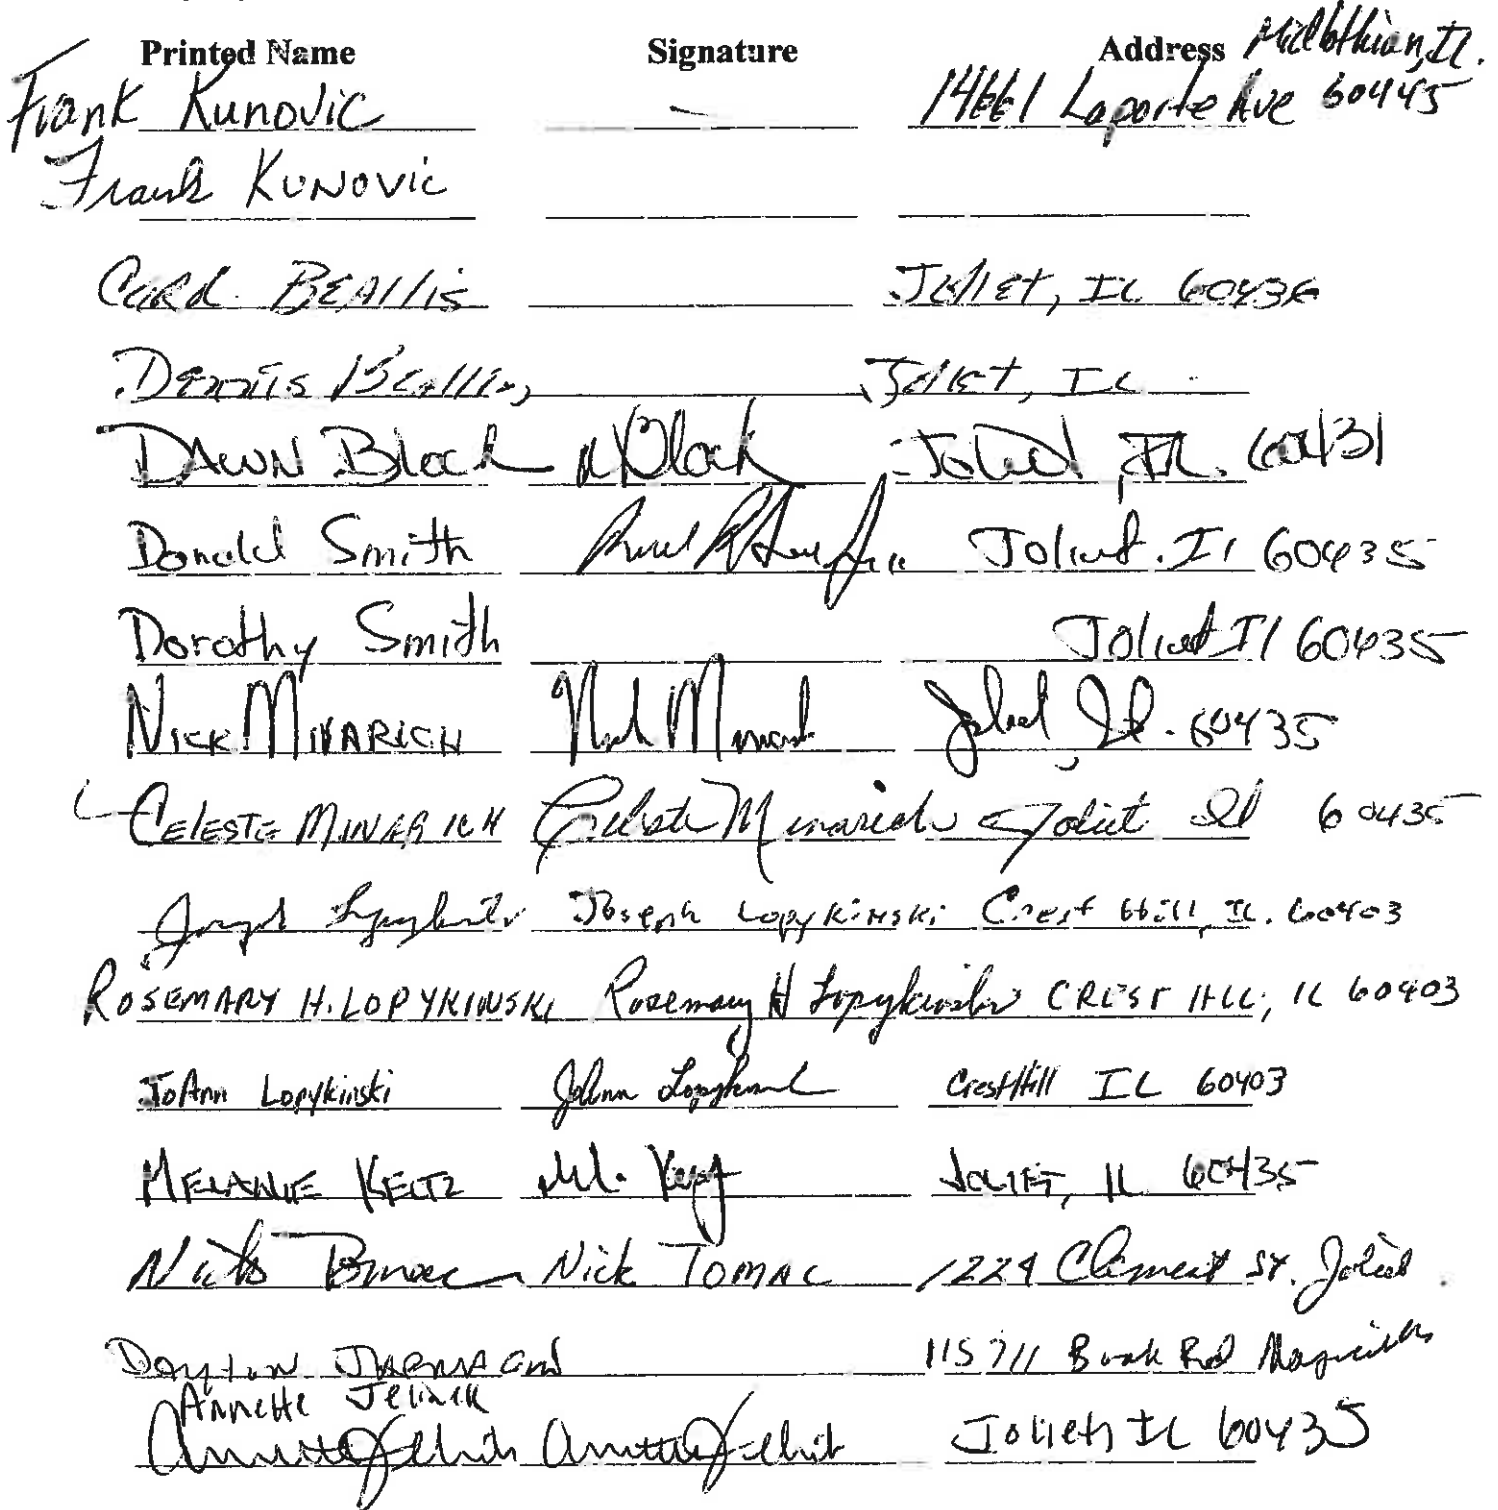 Printed Name Signature Address Midlothian, Il.
Frank Kunovic 14661 Laporte Ave 60445
Frank Kunovic
Beallis Joliet, IL 60436
Dennis Beallis Joliet, IL
Dawn Block Block Joliet, IL. 60431
Donald Smith Joliet. Il 60435
Dorothy Smith Joliet Il 60435
Nick Minarich Nick Minarich Joliet, Il. 60435
Celeste Minarich Celeste Minarich Joliet Il 60435
Joseph Lopykinski Joseph Lopykinski Crest Hill, IL. 60403
Rosemary H. Lopykinski Rosemary H Lopykinski Crest Hill, IL 60403
JoAnn Lopykinski JoAnn Lopykinski Crest Hill IL 60403
Melanie Keltz Joliet, IL 60435
Nick Tomac 1224 Clement St. Joliet
Dayton Rd
Annette Jelinek
Annette Jelinek Annette Jelinek Joliet, IL 60435